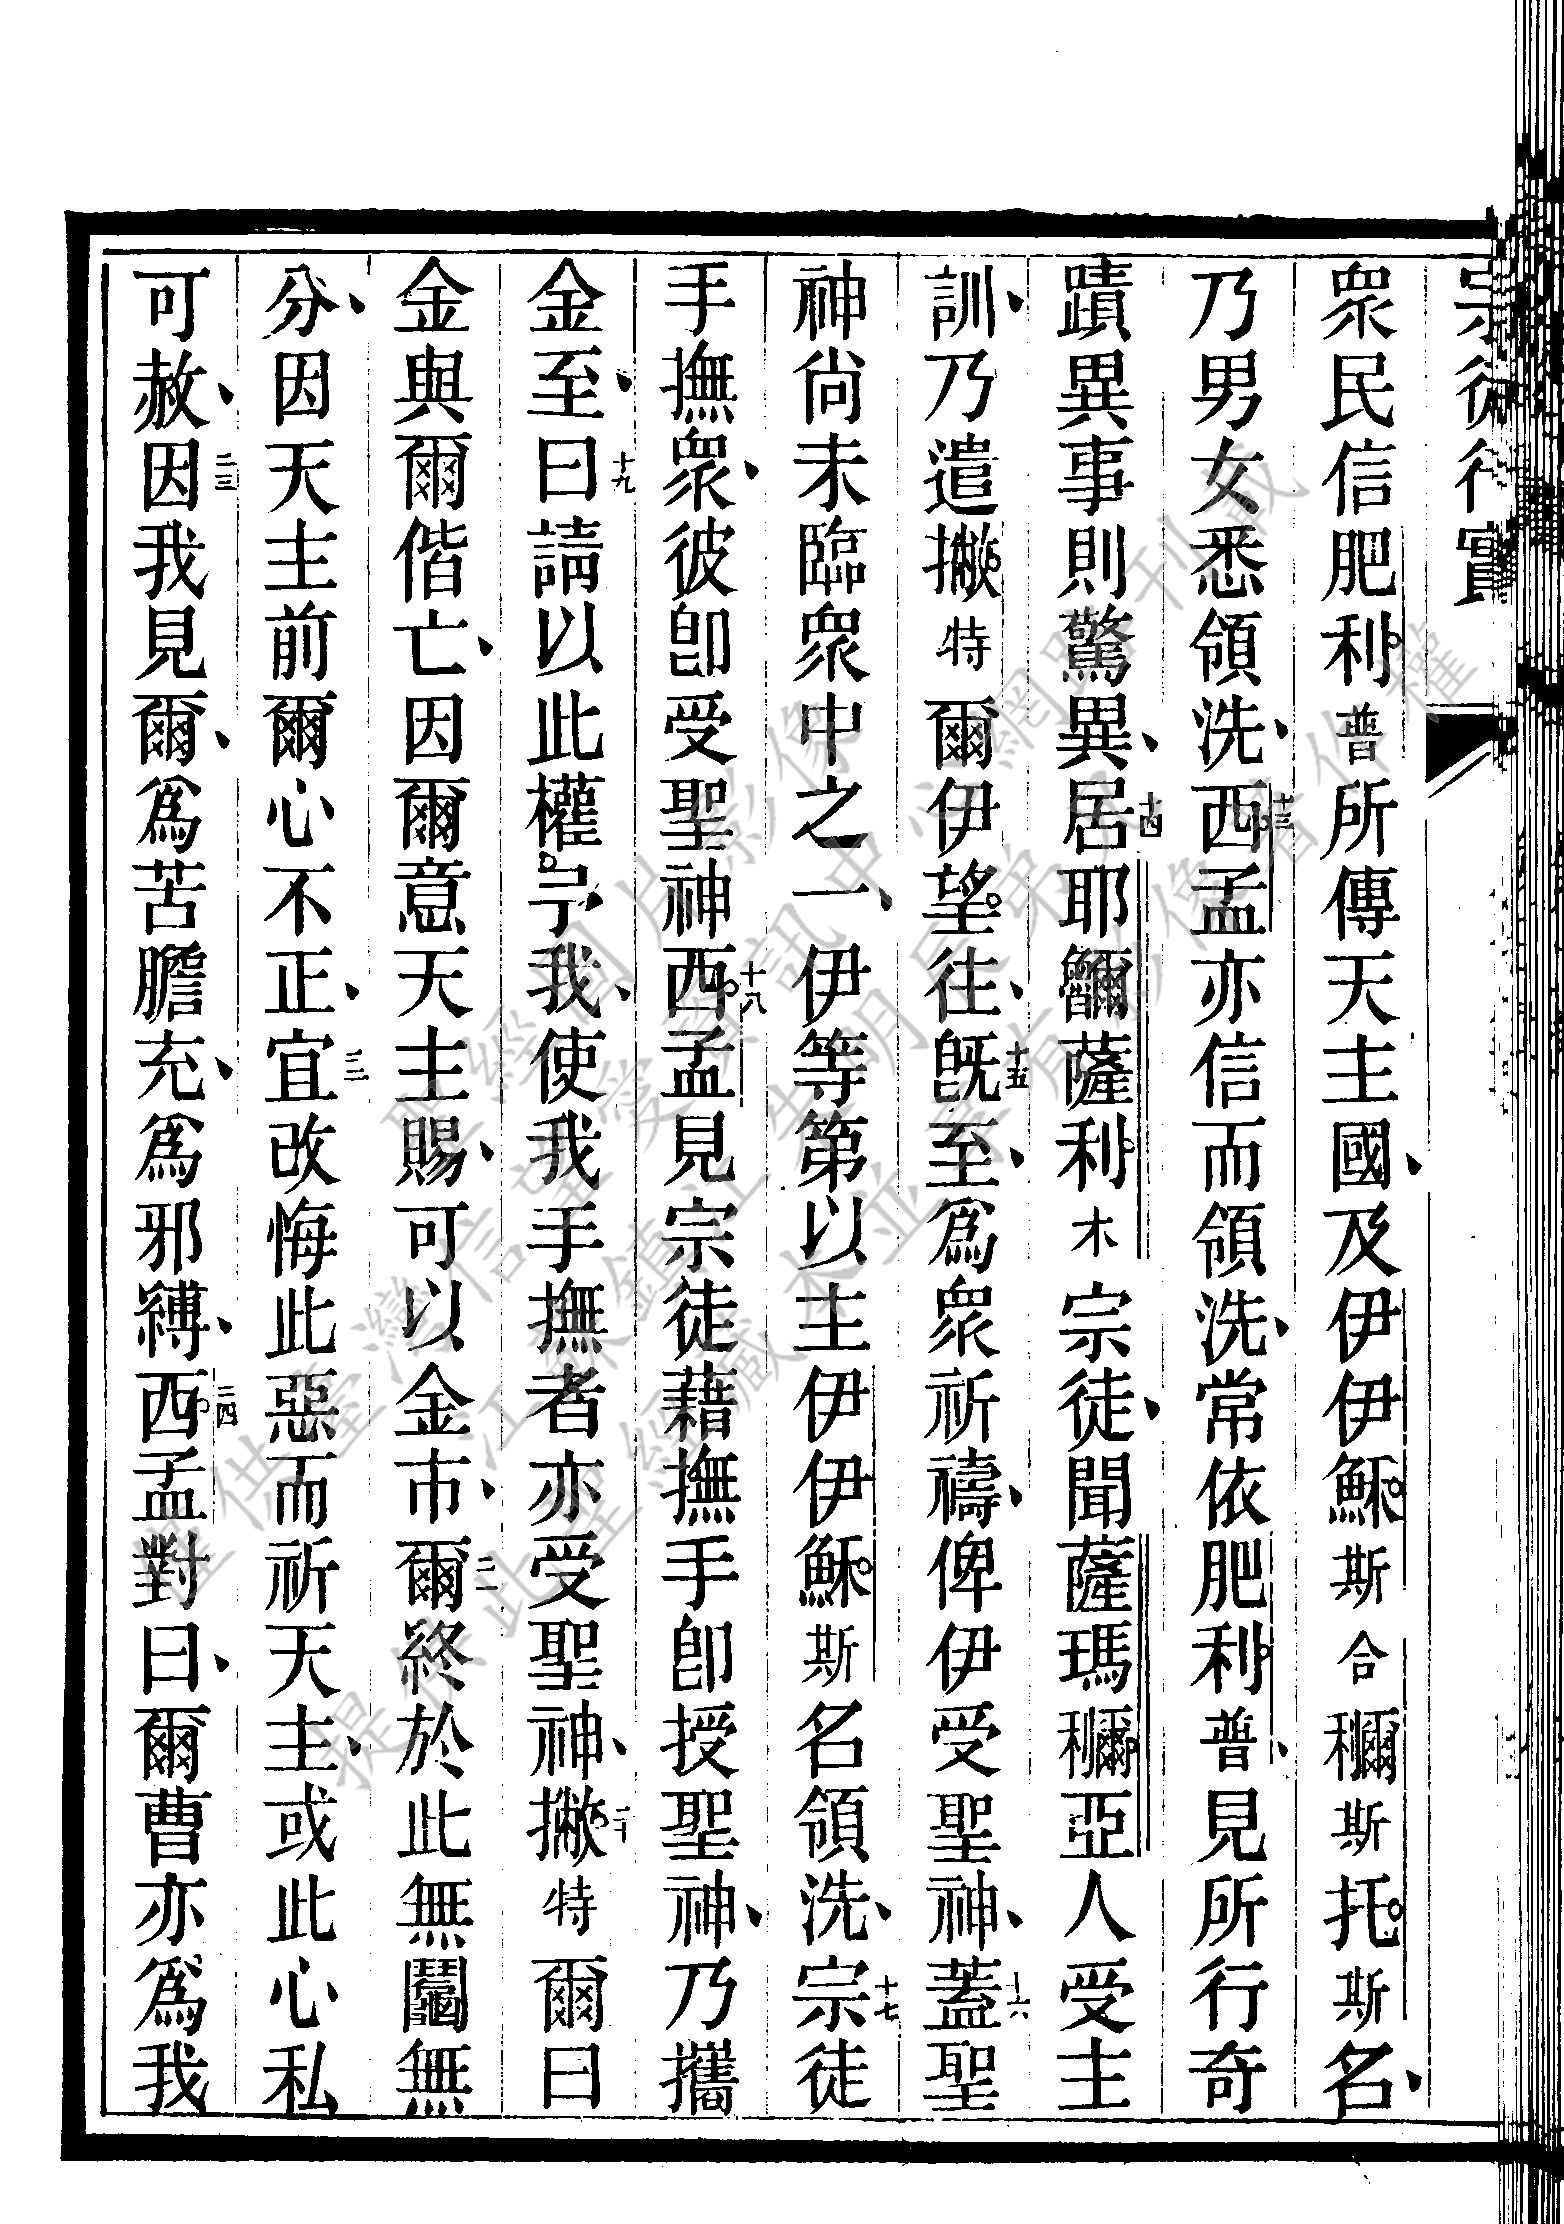 宗徒行實
衆民信肥利普所傳天主國、及伊伊穌斯合𥡝斯托斯名、
乃男女悉領洗、十三西孟亦信而領洗、常依肥利普、見所行奇
蹟異事則驚異、十四居耶㘈薩利木宗徒、聞薩瑪𥡝亞人受主
訓、乃遣撇特爾伊望往、十五旣至、爲衆祈禱、俾伊受聖神、十六蓋聖
神尙未臨衆中之一、伊等第以主伊伊穌斯名領洗、十七宗徒
手撫衆、彼卽受聖神十八西孟見宗徒藉撫手卽授聖神、乃攜
金至、十九曰請以此權予我、使我手撫者亦受聖神、二十撇特爾曰
金與爾偕亡、因爾意天主賜、可以金市、二一爾終於此無鬮無
分、因天主前爾心不正、二二宜改悔此惡而祈天主、或此心私
可赦、二三因我見爾、爲苦膽充、爲邪縛、二四西孟對曰、爾曹亦爲我